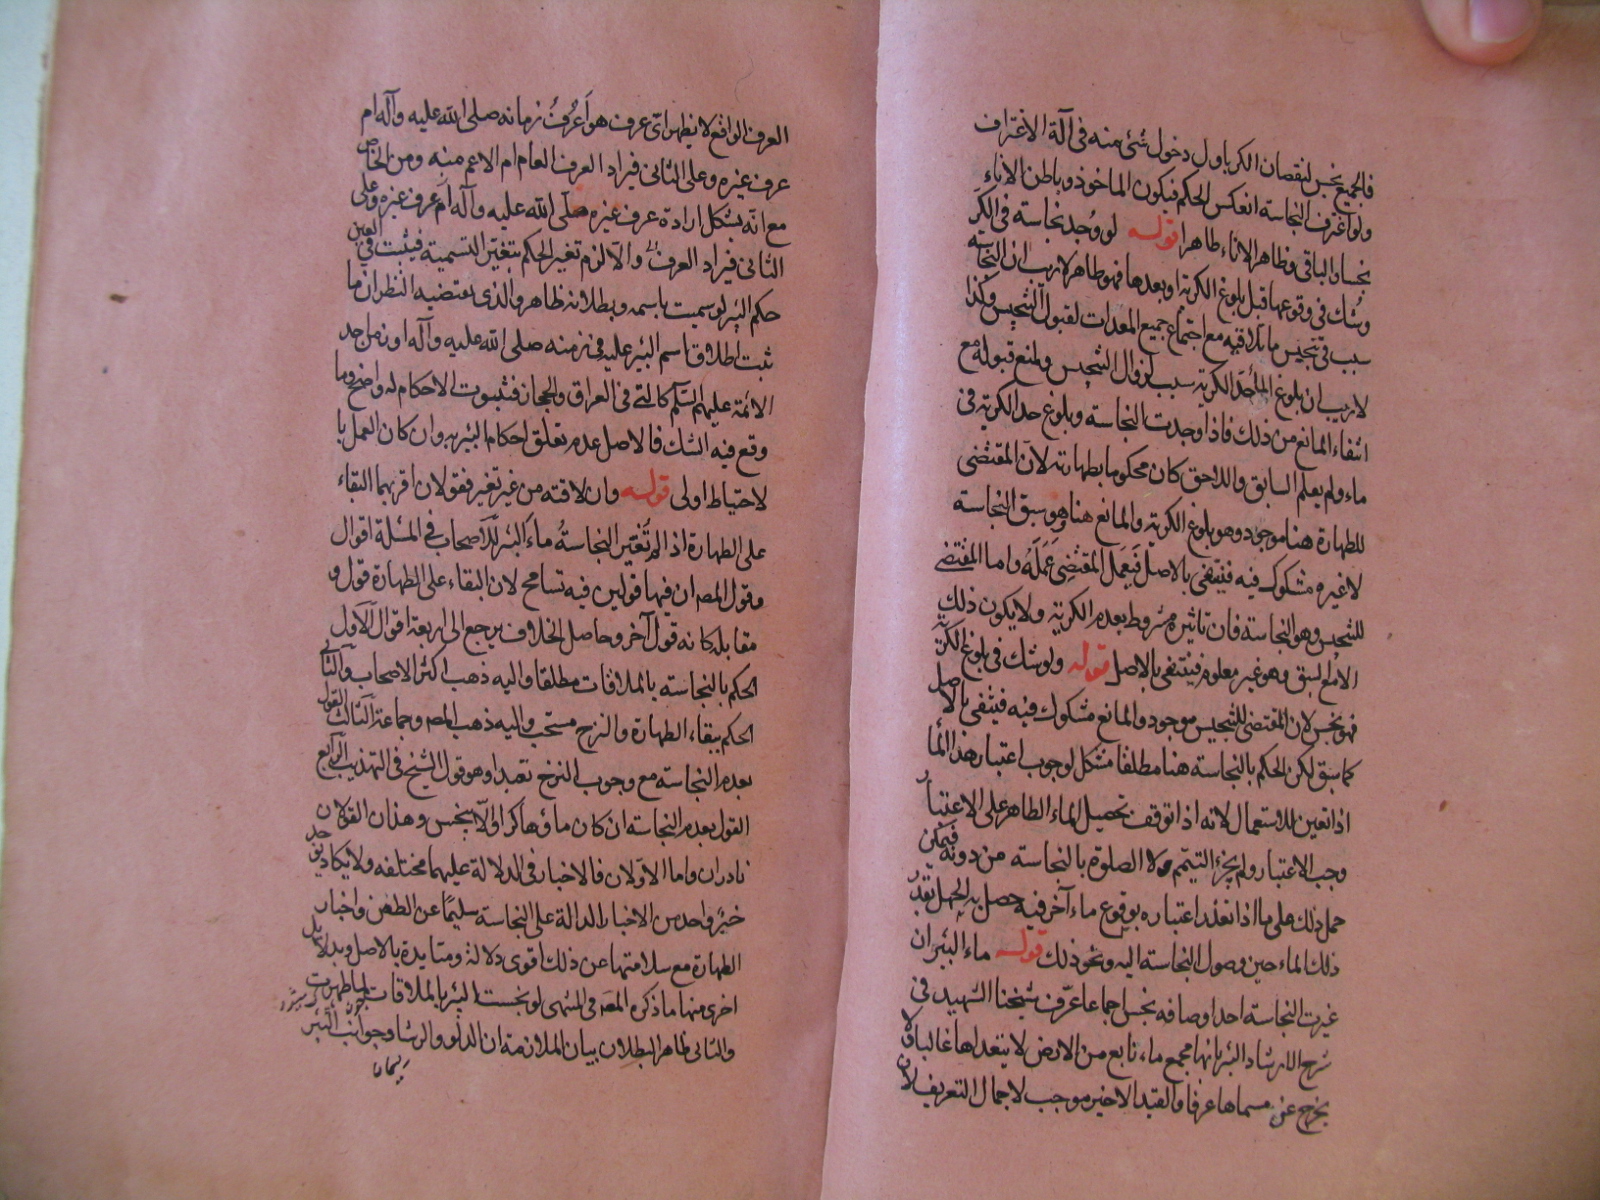 فالجميع نجس لنقصان الكر باول دخول شئ منه في آلة الاغتراف
ولو اغترف النجاسة انعكس الحكم فيكون الماخوذ و باطن الاناء
نجسا و الباقي و ظاهر الاناء طاهرا قوله لو وُجد نجاسة في الكر
وشك في وقوعها قبل بلوغ الكرية او بعدها فهو طاهر لاريب ان النجاسة
سبب في تنجيس ما تلاقيه مع اجتماع جميع المعدات لقبول التنجيس وكذا
لاريب ان بلوغ الماء حد الكرية سبب لزوال التنجيس و لمنع قبوله مع
انتفاء المانع من ذلك فاذا وجدت النجاسة و بلوغ حد الكرية في
ماء ولم يعلم السابق واللاحق كان محكوما بطهارته لان المقتضى
للطهارة هنا موجود وهو بلوغ الكرية والمانع هنا وهو سبق النجاسة
لا غيره مشكوك فيه فينتفي بالاصل فيَعمل المقتضِي عَمَلَهُ واما المقتضى
للتنجيس وهو النجاسة فان تاثيره مشروط بعدم الكرية ولا يكون ذلك
الا مع السبق وهو غير معلوم فينتفي بالاصل قوله ولو شك في بلوغ الكرية
فهو نجس لان المقتضى للتنجيس موجود والمانع مشكوك فيه فينتفي بالاصل
كما سبق لكن الحكم بالنجاسة هنا مطلقا مشكل لوجوب اعتبار هذا الماء
اذا تعين للاستعمال لانه اذا توقف تحصيل الماء الطاهر على الاعتبار
وجب الاعتبار ولم يجزء التيمم ولا الصلوة بالنجاسة من دونه فيمكن
حمل ذلك على ما اذا تعذر اعتباره بوقوع ماء آخر فيه حصل به الجهل بقدر
ذلك الماء حين وصول النجاسة اليه ونحو ذلك قوله ماء البئر ان
غيرت النجاسة احد اوصافه نجس اجماعا عرّف شيخنا الشهيد في
شرح الارشاد البئر بانها مجمع ماء نابع من الارض لا يتعداها غالبا ولا
يخرج عن مسماها عرفا والقيد الاخير موجب لاجمال التعريف لان
العرف الواقع لا يظهر اى عرف هو اَعُرْفُ زمانه صلى الله عليه وآله ام
عرف غيره وعلى الثاني فيراد العرف العام ام الاعم منه ومن الخاص
مع انه يشكل ارادة عرف غيره صلى الله عليه وآله ام عرف غيره وعلى
الثاني فيراد العرف والا لزم تغير الحكم بتغير التسمية فيثبت في العين
حكم البئر لو سميت باسمه و بطلانه ظاهر والذى يقتضيه النظر ان ما
ثبت اطلاق اسم البئر عليه في زمنه صلى الله عليه وآله او زمن احد
الائمة عليهم السلم كالتي في العراق والحجاز فثبوت الاحكام له واضح وما
وقع فيه الشك فالاصل عدم تعلق احكام البئر به وان كان العمل با
لاحتياط اولى قوله وان لاقته من غير تغير فقولان اقربهما البقاء
على الطهارة اذا لم تُغَيّر النجاسةُ ماءَ البئر للاصحاب في المسئلة اقوال
وقول المصـ ان فيها قولين فيه تسامح لان البقاء على الطهارة قول و
مقابله كانه قول آخر وحاصل الخلاف يرجع الى اربعة اقوال الاول
الحكم بالنجاسة بالملاقات مطلقا واليه ذهب اكثر الاصحاب والثاني
الحكم ببقاء الطهارة والنزح مستحب واليه ذهب المصـ وجماعة الثالث القول
بعدم النجاسة مع وجوب النزح تعبدا وهو قول الشيخ في التهذيب الرابع
القول بعدم النجاسة ان كان ماؤها كرا والا ينجس وهذان القولان
نادران واما الاولان فالاخبار في الدلالة عليهما مختلفه ولا يكاد يوجد
خبر واحد من الاخبار الدالة على النجاسة سليمًا عن الطعن واخبار
الطهارة مع سلامتها عن ذلك اقوى دلالة ومتايدة بالاصل وبدلائل
اخرى منها ما ذكره المصـ في المنتهى لو نجست البئر بالملاقات لما طهرت
والثاني ظاهر البطلان بيان الملازمة ان الدلو والرشا وجوانب البئر
ريسمان